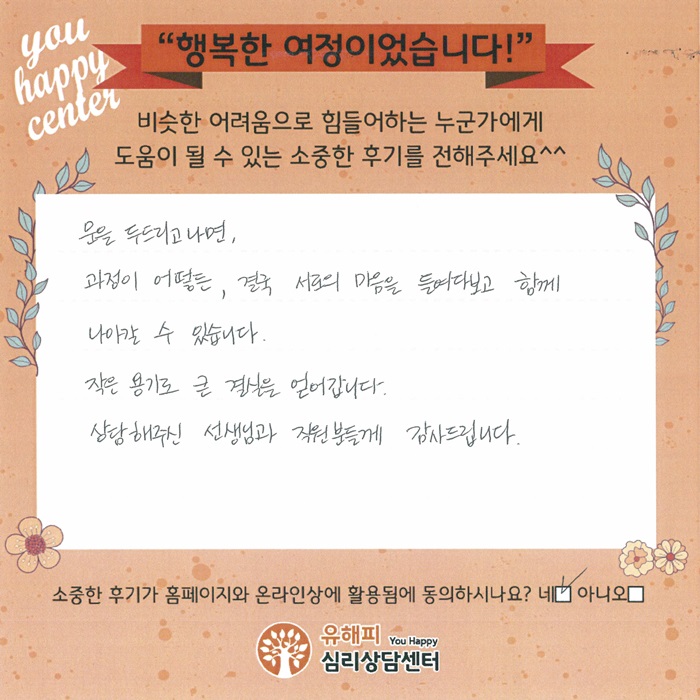 you
happy
center
“행복한 여정이었습니다!”
비슷한 어려움으로 힘들어하는 누군가에게
도움이 될 수 있는 소중한 후기를 전해주세요^^
문을 두드리고나면,
과정이 어떻든, 결국 서로의 마음을 들여다보고 함께
나아갈 수 있습니다.
작은 용기로 큰 결실을 얻어갑니다.
상담해주신 선생님과 직원분들께 감사드립니다.
소중한 후기가 홈페이지와 온라인상에 활용됨에 동의하시나요? 네 아니오
유해피 You Happy
심리상담센터